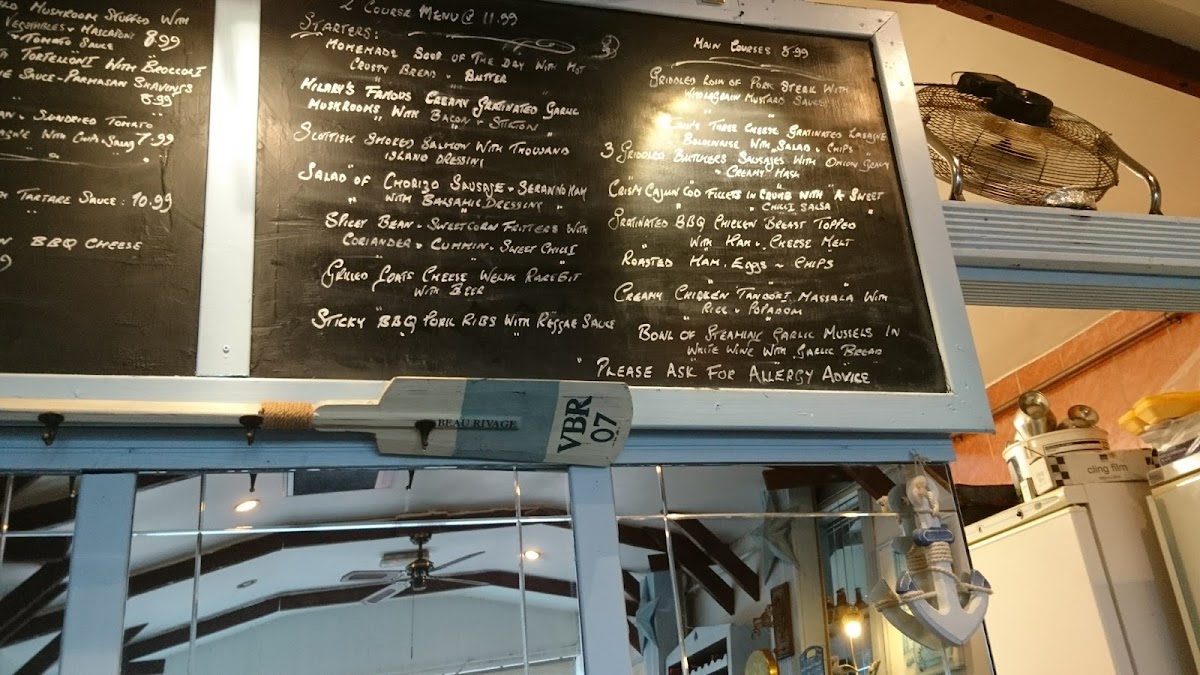 Mushroom Stuffed With
Vegetables & Mascaroni
Tomato Sauce 8.99
Tortelloni With Broccoli
Sauce - Parmasan Shavings
8.99
Sundried Tomato
With Chips & Salad 7.99
Tartare Sauce : 10.99
BBQ Cheese
2 Course Menu @ 11.99
Starters:
Homemade Soup of The Day With Hot
Crusty Bread & Butter
Hilary's Famous Creamy Gratinated Garlic
Mushrooms With Bacon & Stilton
Scottish Smoked Salmon With Thousand
Island Dressing
Salad of Chorizo Sausage & Serano Ham
With Balsamic Dressing
Spicy Bean & Sweetcorn Fritters With
Coriander & Cummin & Sweet Chilli
Grilled Goats Cheese Welsh Rarebit
With Beer
Sticky BBQ Pork Ribs With Reggae Sauce
Main Courses 8.99
Griddled Loin of Pork Steak With
Wholegrain Mustard Sauce
Three Cheese Gratinated Lasagne
Bolognaise With Salad & Chips
3 Griddled Butchers Sausages With Onion Gravy
& Creamy Mash
Crispy Cajun Cod Fillets in Crumb With "A Sweet
Chilli Salsa
Gratinated BBQ Chicken Breast Topped
With Ham & Cheese Melt
Roasted Ham, Eggs & Chips
Creamy Chicken Tandori Massala With
Rice & Popadom
Bowl of Steaming Garlic Mussels In
White Wine With Garlic Bread
Please Ask For Allergy Advice
BEAU RIVAGE
VBR
07
cling film